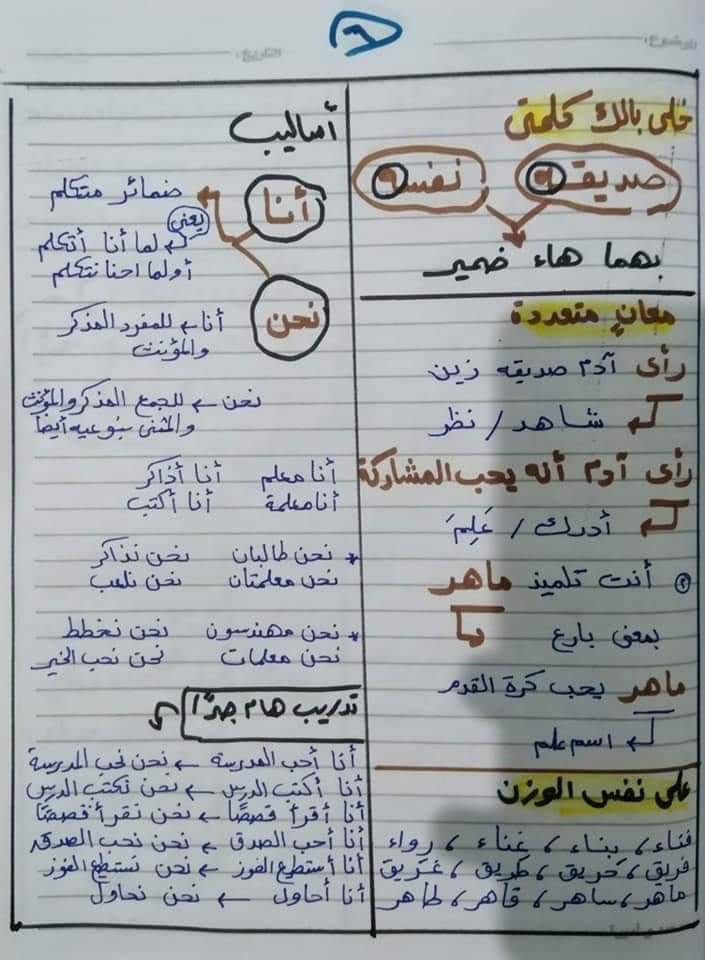 الموضوع:
التاريخ:
٦
خلى بالك كلمتى
صديقه نفسه
بهما هاء ضمير
معانٍ متعددة
رأى آدم صديقه زين
شاهد / نظر
رأى آدم أنه يحب المشاركة
أدرك / عَلِمَ
٢ أنت تلميذ ماهر
بمعنى بارع
ماهر يحب كرة القدم
اسم علم
على نفس الوزن
فناء، بناء، غناء، رواء
فريق، حريق، طريق، غريق
ماهر، ساهر، قاهر، طاهر
أساليب
أنا
ضمائر متكلم
يعنى
لما أنا أتكلم
أو لما احنا نتكلم
نحن
أنا ← للمفرد المذكر
والمؤنث
نحن ← للجمع المذكر والمؤنث
والمثنى بنوعيه أيضاً
أنا معلم أنا أذاكر
أنا معلمة أنا أكتب
* نحن طالبان نحن نذاكر
نحن معلمتان نحن نلعب
* نحن مهندسون نحن نخطط
نحن معلمات نحن نحب الخير
تدريب هام جدًا
أنا أحب المدرسة ← نحن نحب المدرسة
أنا أكتب الدرس ← نحن نكتب الدرس
أنا أقرأ قصصًا ← نحن نقرأ قصصًا
أنا أحب الصدق ← نحن نحب الصدق
أنا أستطيع الفوز ← نحن نستطيع الفوز
أنا أحاول ← نحن نحاول